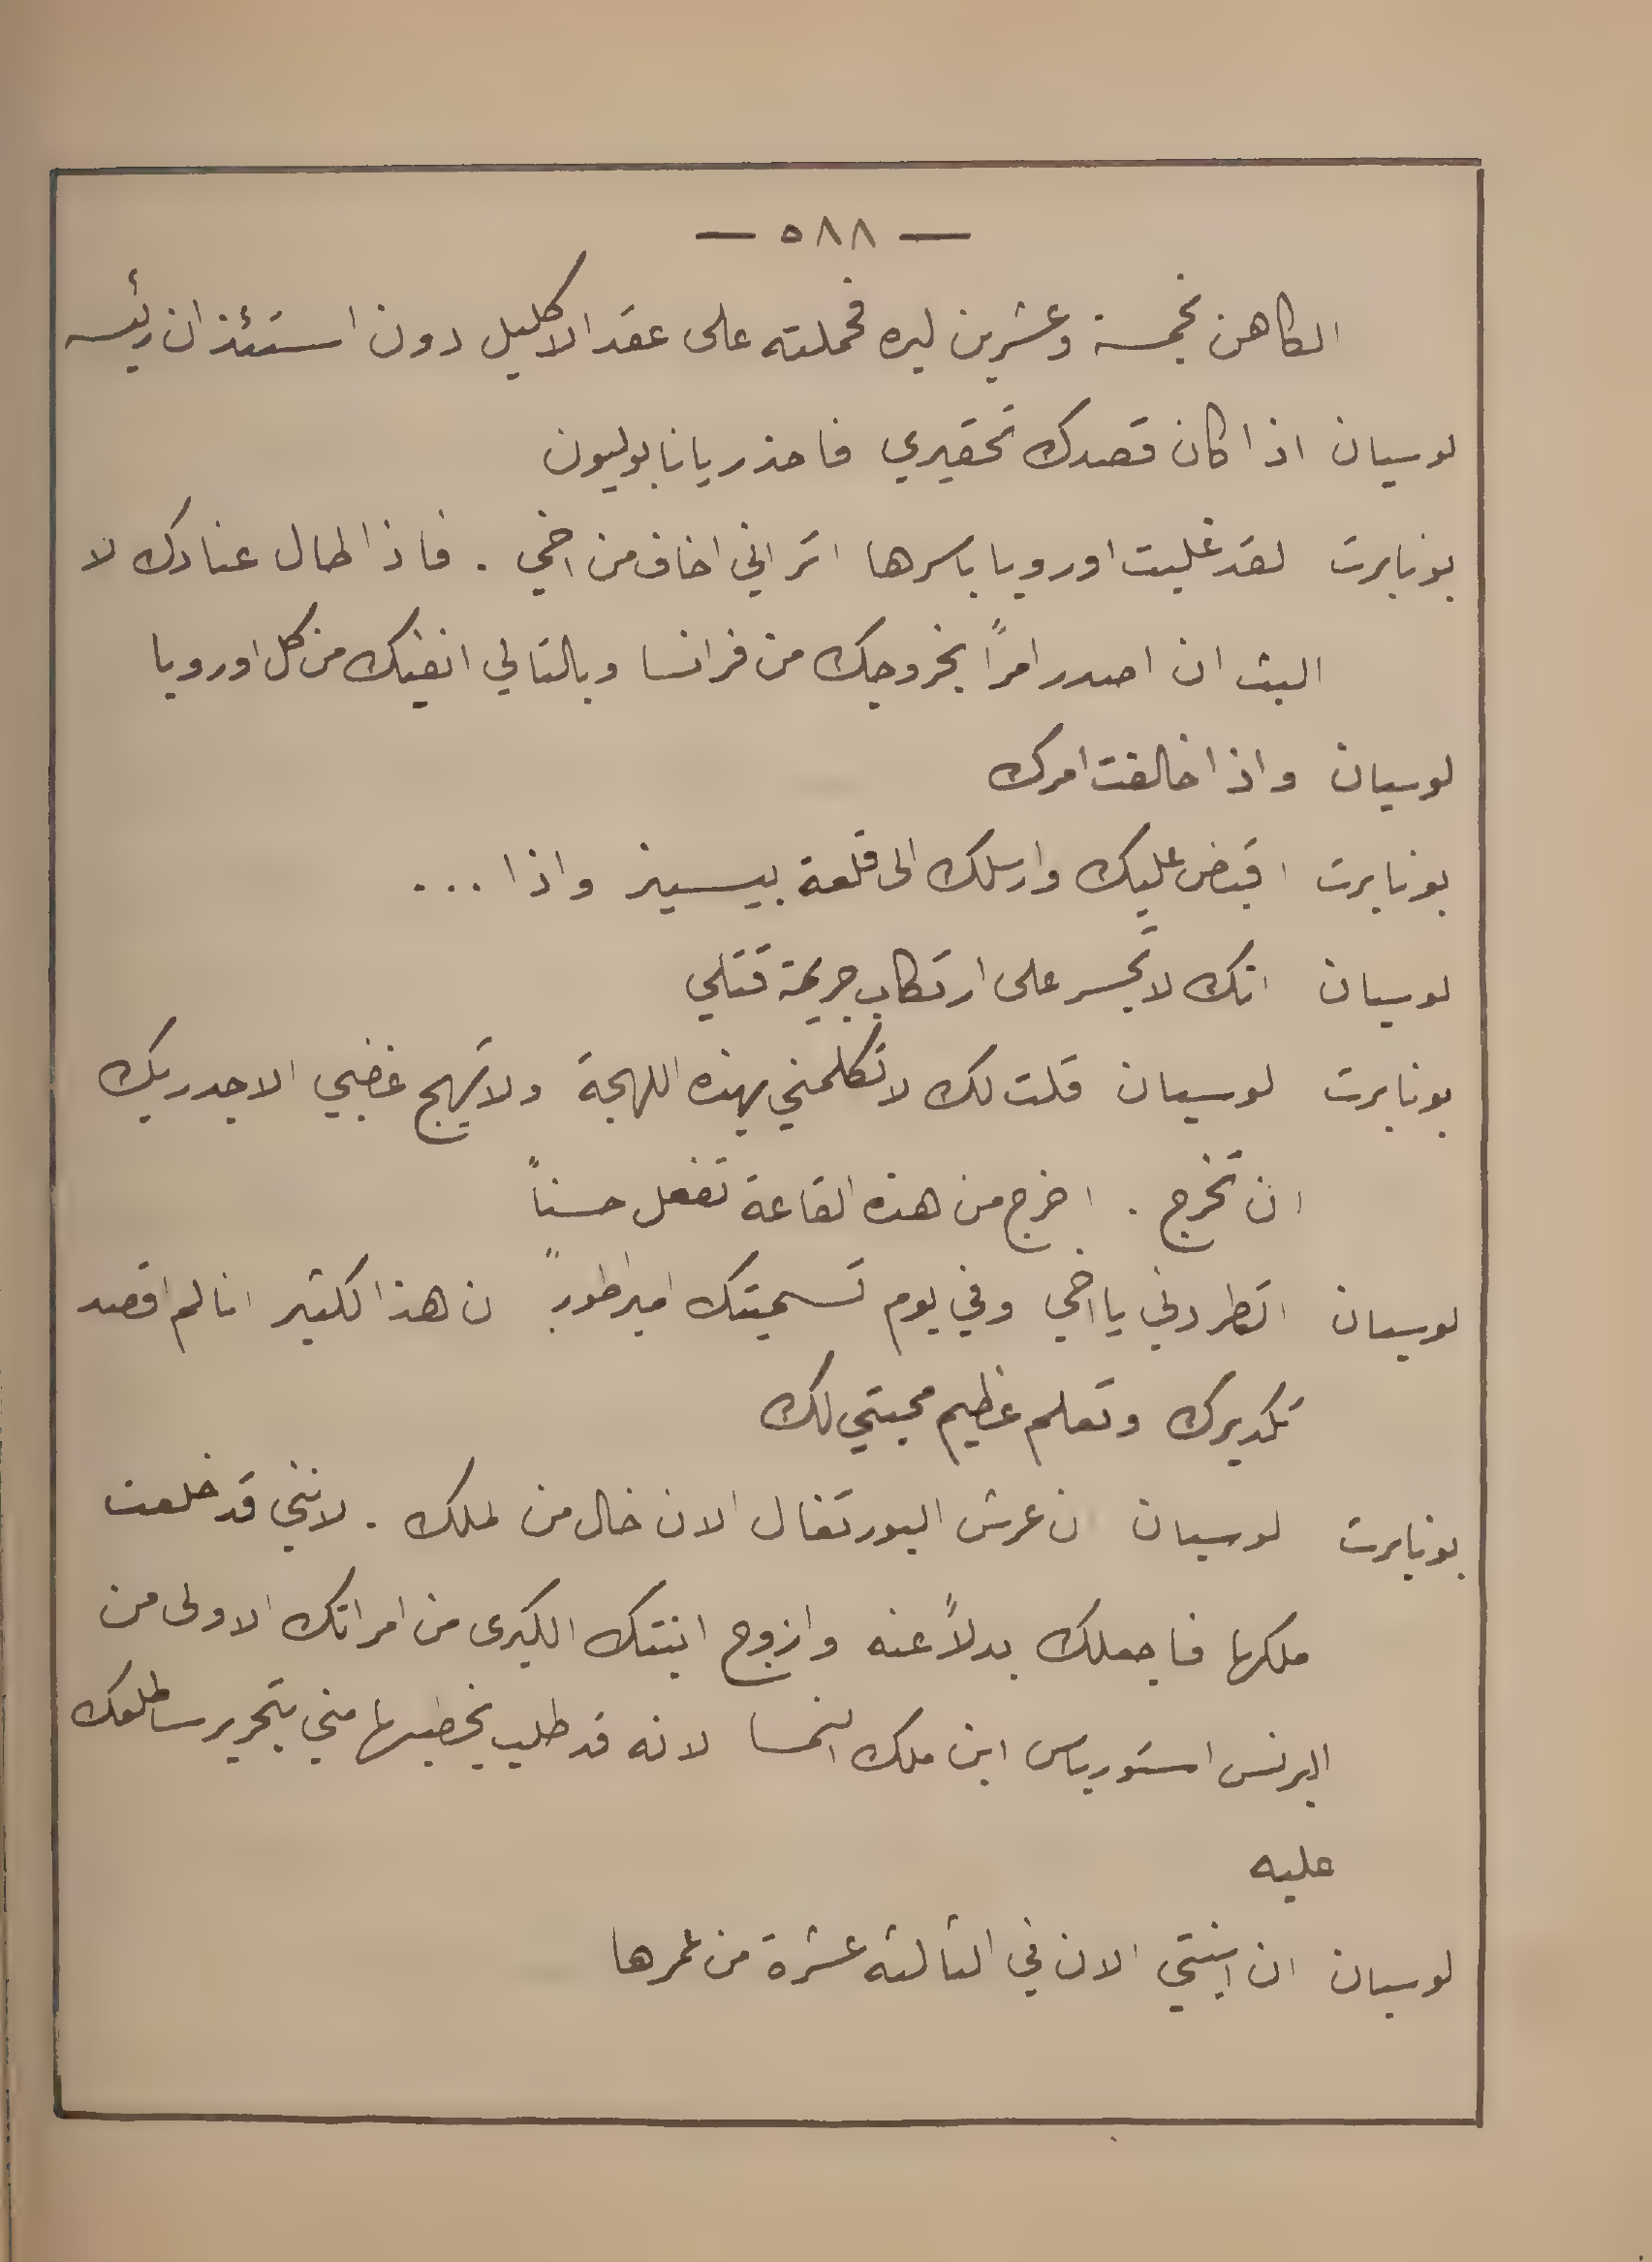 — ٥٨٨ —
الكاهن بخمسة وعشرين ليره فحملته على عقد الاكليل دون استئذان رئيسه
لوسيان اذا كان قصدك تحقيري فاحذر يا نابوليون
بونابرت لقد غلبت اوروبا باسرها اتراني اخاف من اخي . فاذا طال عنادك لا
البث ان اصدر امراً بخروجك من فرانسا وبالتالي انفينك من كل اوروبا
لوسيان واذا خالفت امرك
بونابرت اقبض عليك وارسلك الى قلعة بيسيز واذا ...
لوسيان انك لا تجسر على ارتكاب جريمة قتلي
بونابرت لوسيان قلت لك لا تكلمني بهذه اللهجة ولا تهيج غضبي الاجدر بك
ان تخرج . اخرج من هذه القاعة تفعل حسناً
لوسيان اتطردني يا اخي وفي يوم تسميتك امبراطوراً ان هذا لكثير انا لم اقصد
تكديرك وتعلم عظيم محبتي لك
بونابرت لوسيان ان عرش البورتغال الان خال من لملك . لانني قد خلعت
ملكها فاجعلك بدلاً عنه وازوج ابنتك الكبرى من امراتك الاولى من
البرنس استورياس ابن ملك النمسا لانه قد طلب يخطبها مني بتحرير ساطلعك
عليه
لوسيان ان ابنتي الان في الثالثه عشرة من عمرها